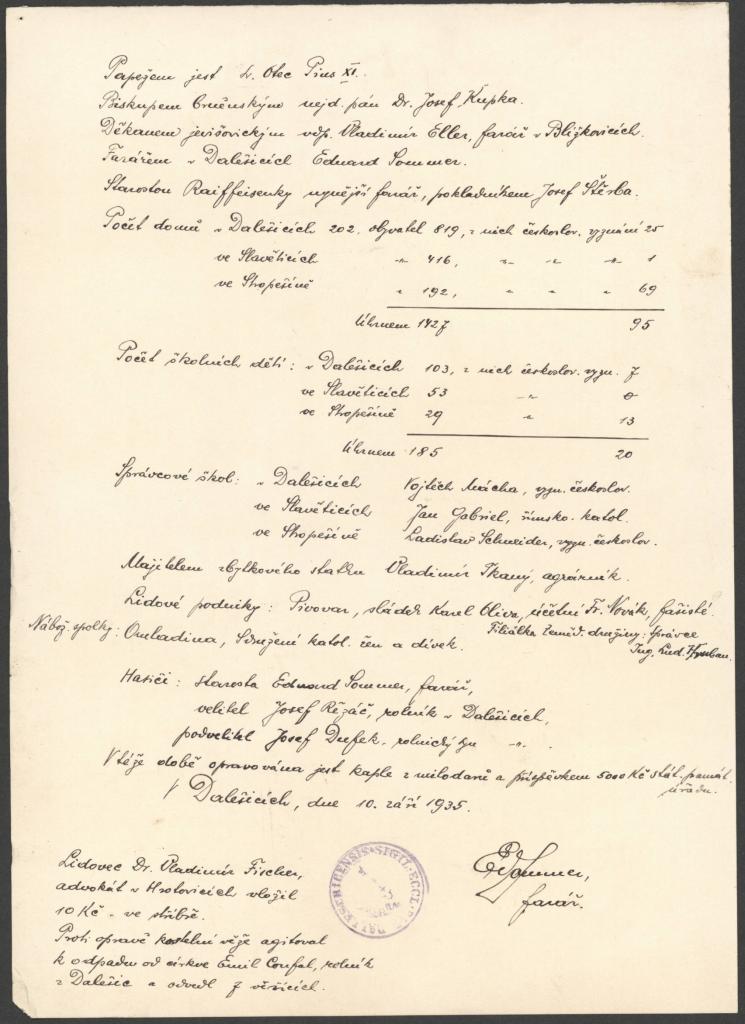 Papežem jest sv. Otec Pius XI.
Biskupem brněnským nejd. pán Dr. Josef Kupka.
Děkanem jevišovickým vdp. Vladimír Eller, farář v Blížkovicích.
Farářem v Dalešicích Eduard Sommer.
Starostou Raiffeisenky nynější farář, pokladníkem Josef Štěrba.
Počet domů v Dalešicích 202. obyvatel 819, z nich českoslov. vyznání 25
ve Slavěticích -„- 416, -„- „ -„- 1
ve Stropešíně „ 192, „ „ „ 69
Úhrnem 1427 95
Počet školních dětí: v Dalešicích 103, z nich českoslov. vyzn. 7
ve Slavěticích 53 -„- 0
ve Stropešíně 29 „ 13
Úhrnem 185 20
Správcové škol: v Dalešicích Vojtěch Mácha, vyzn. českoslov.
ve Slavěticích Jan Gabriel, římsko. katol.
ve Stropešíně Ladislav Schneider, vyzn. českoslov.
Majitelem zbytkového statku Vladimír Tkaný, agrárník.
Lidové podniky: Pivovar, sládek Karel Oliva, účetní Fr. Novák, fašisté.
Filiálka zeměd. družiny: správce
Ing. Lud.
Nábož. spolky: Omladina, Sdružení katol. žen a dívek.
Hasiči: starosta Eduard Sommer, farář,
velitel Josef Řezáč, rolník v Dalešicích,
podvelitel Josef Dufek, rolnický syn -„- .
V téže době opravována jest kaple z milodarů a příspěvkem 5000 Kč stát. památ.
úřadu.
V Dalešicích, dne 10. září 1935.
Lidovec Dr. Vladimír Fischer,
advokát v Hrotovicích vložil
10 Kč - ve stříbře.
Proti opravě kostelní věže agitoval
k odpadu od církve Emil Coufal, rolník
z Dalešic a odvedl 7 věřících.
SIGILL. ECCL. DALLESCHICENSIS
Ed Sommer,
farář.